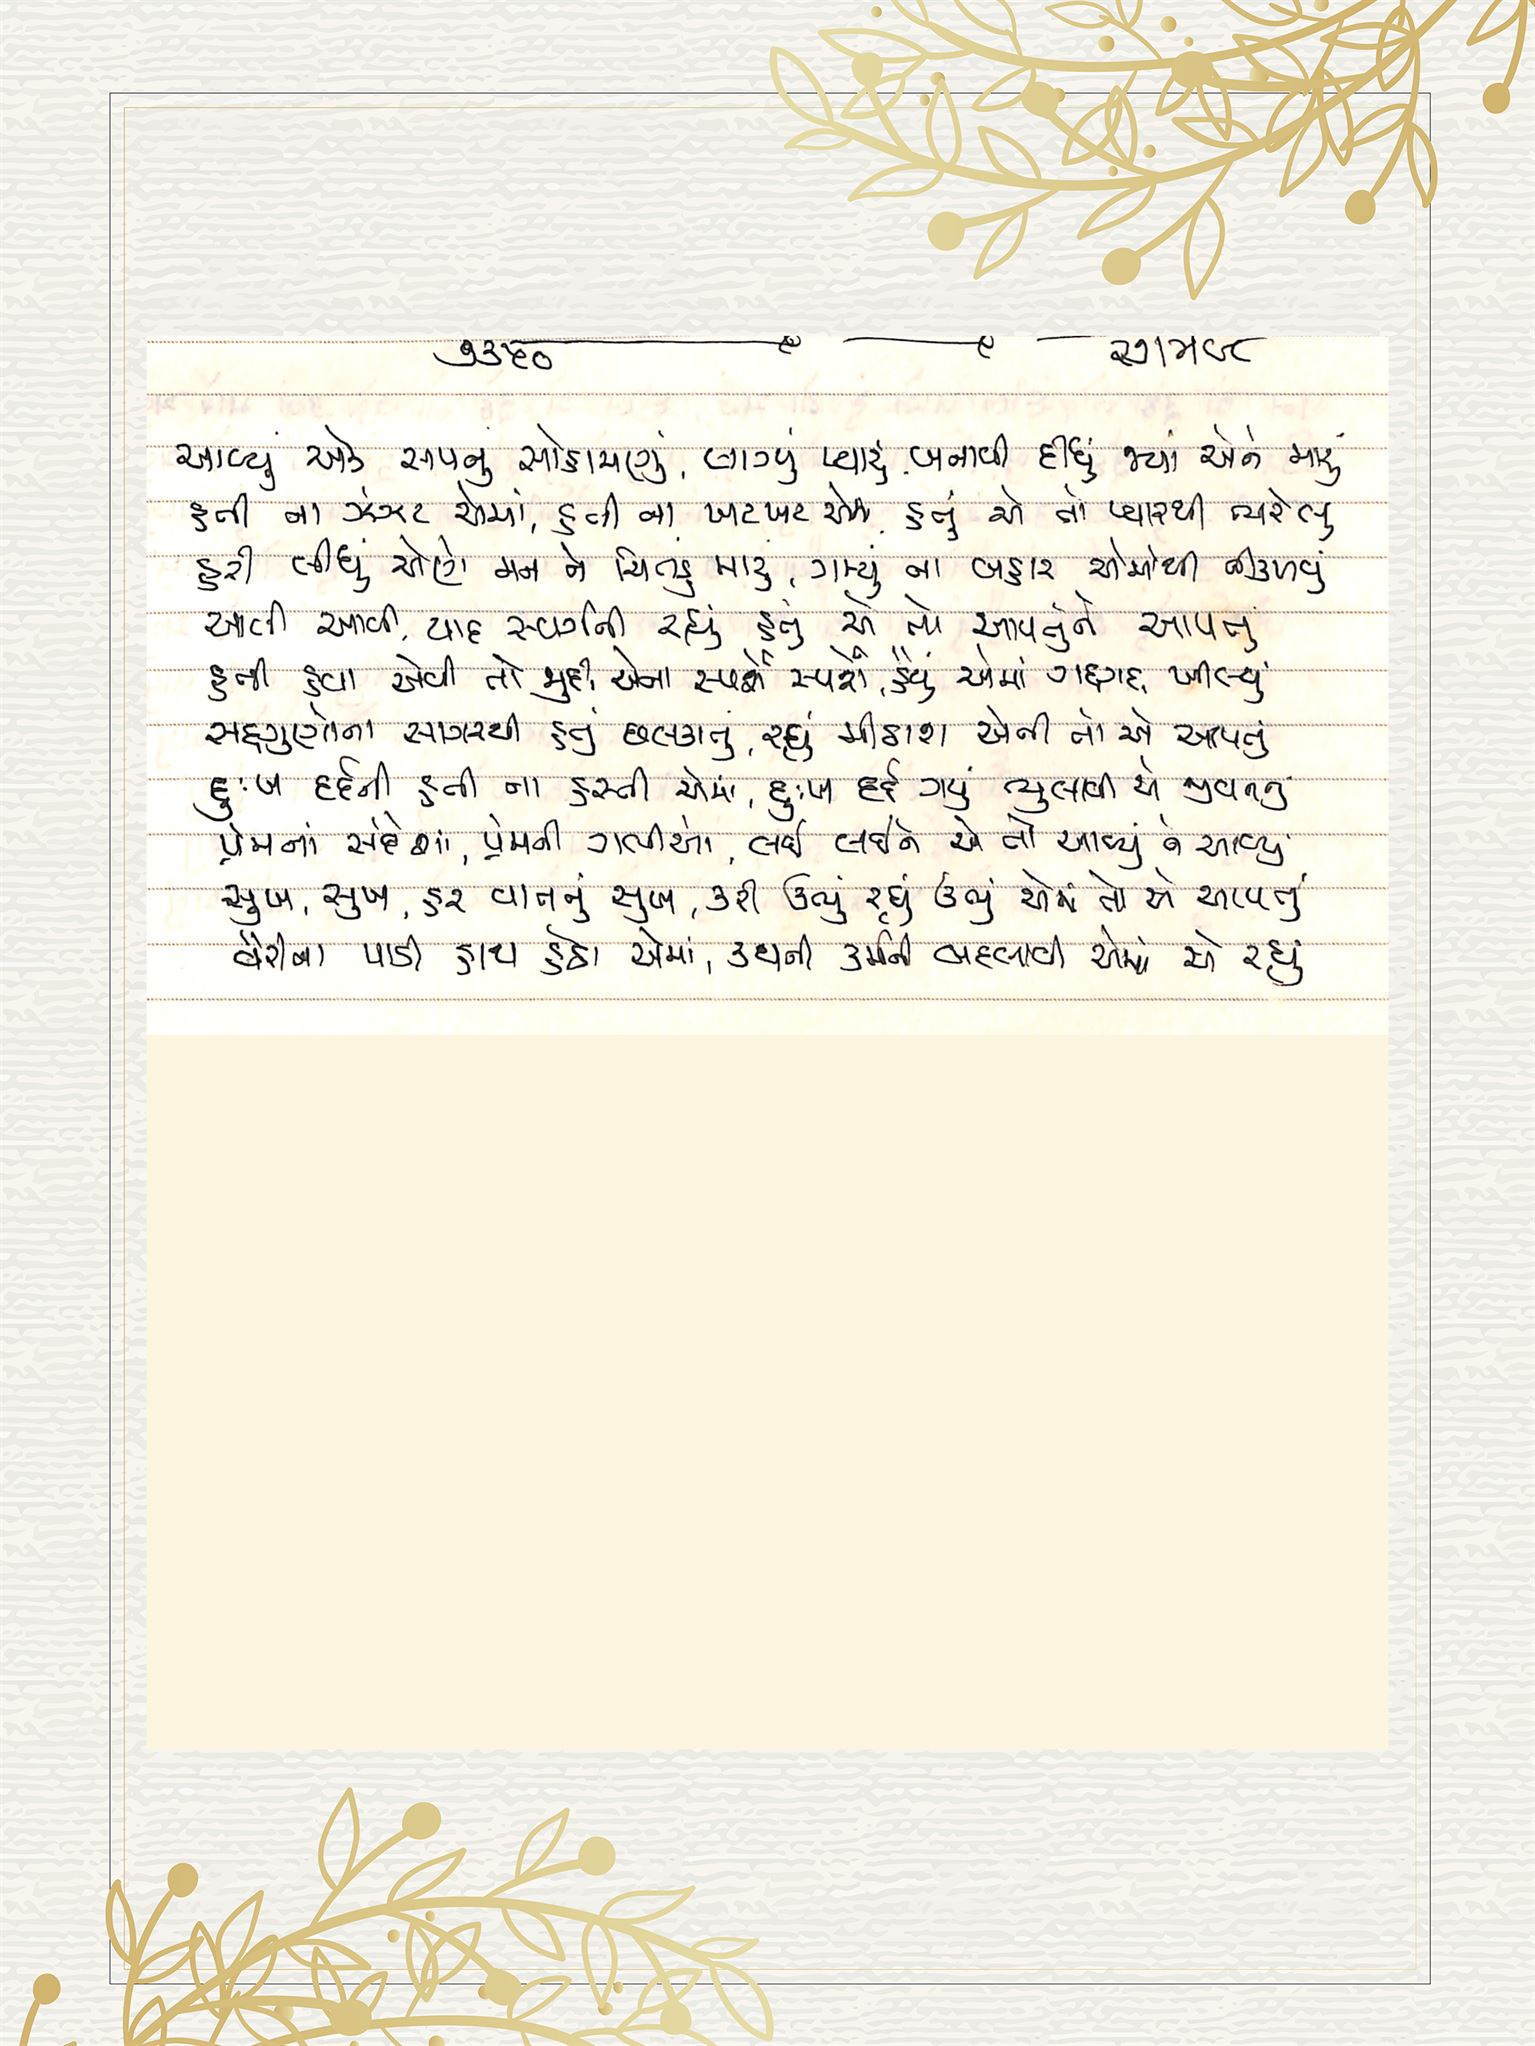 ૭૩૬૦
આવ્યું એક સપનું સોહામણું, લાગ્યું પ્યારું, બનાવી દીધું જ્યાં એને મારું
હતી ના ઝંઝટ એમાં, હતી ના ખટપટ એમાં, હતું એ તો પ્યારથી ભરેલું
હરી લીધું એણે મન ને ચિત્તડું મારું, ગમ્યું ના બહાર એમાંથી નીકળવું
આવી આવી, યાદ સ્વર્ગની રહ્યું હતું એ તો આપતુંને આપતું
હતી હવા એવી તો જુદી, એના સ્પર્શે સ્પર્શે, હૈયું એમાં ગદ્ગદ્ ખીલ્યું
સદ્ગુણોના સાગરથી હતું છલકાતું, રહ્યું મીઠાશ એની તો એ આપતું
દુઃખ દર્દની હતી ના હસ્તી એમાં, દુઃખ દર્દ ગયું ભુલાવી એ જીવનનું
પ્રેમનાં સંદેશા, પ્રેમની ગલીઓ, લઈ લઈને એ તો આવ્યું ને આવ્યું
સુખ, સુખ, હર વાતનું સુખ, કરી ઊભું રહ્યું ઊભું એમાં તો એ આપતું
વેરીના પાડી હાથ હેઠા એમાં, કથની કર્મની બદલાવી એમાં એ રહ્યું